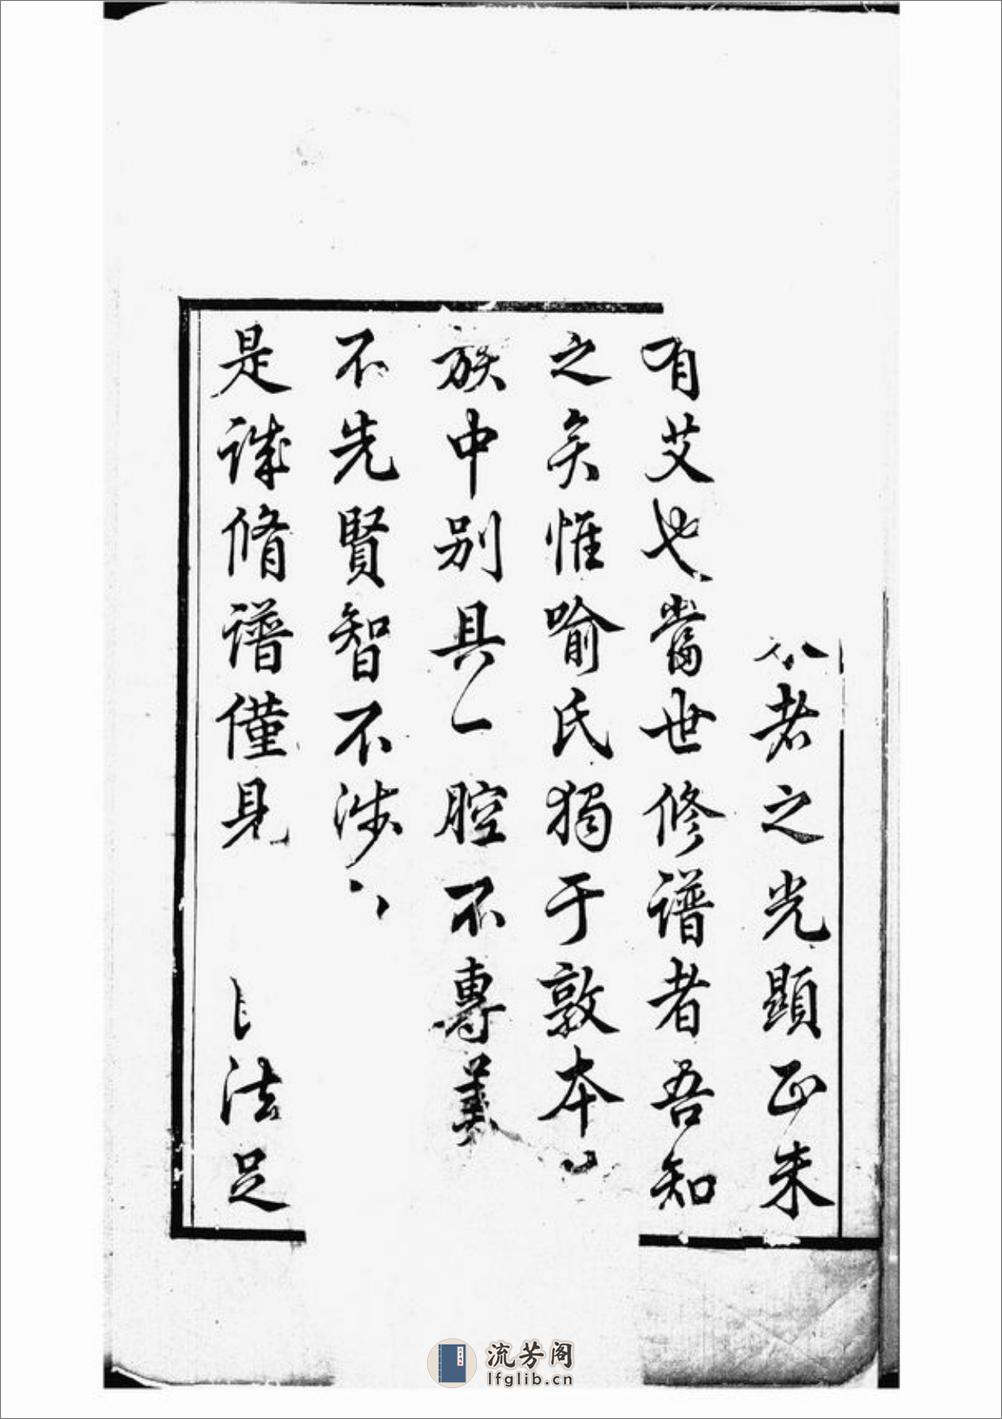 者之光顯正未
有艾也當世修譜者吾知
之矣惟喻氏獨于敦本
族中別具一腔不專美
不先賢智不涉
是誠脩譜僅見法足
流芳阁
lfglib.cn